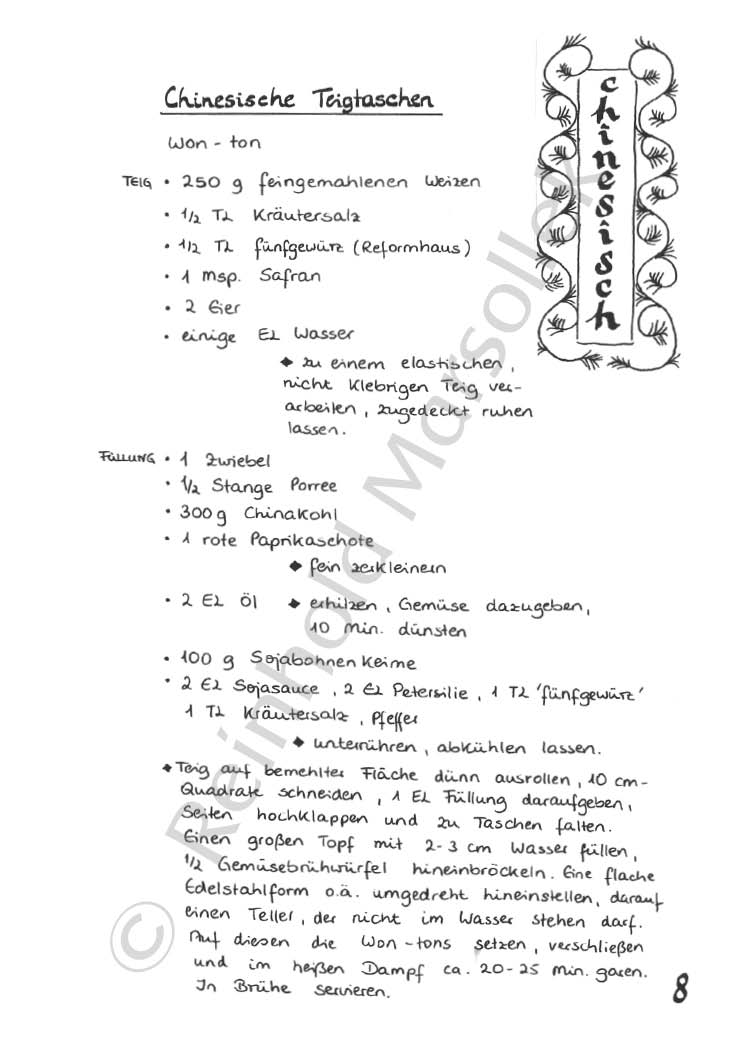 Chinesische Teigtaschen
chinesisch
Won-ton
TEIG • 250 g feingemahlenen Weizen
• 1/2 TL Kräutersalz
• 1/2 TL fünfgewürz (Reformhaus)
• 1 Msp. Safran
• 2 Eier
• einige EL Wasser
◆ zu einem elastischen,
nicht klebrigen Teig ver-
arbeiten, zugedeckt ruhen
lassen.
FÜLLUNG • 1 Zwiebel
• 1/2 Stange Porree
• 300g Chinakohl
• 1 rote Paprikaschote
◆ fein zerkleinern
• 2 EL Öl ◆ erhitzen, Gemüse dazugeben,
10 Min. dünsten
• 100 g Sojabohnenkeime
• 2 EL Sojasauce, 2 EL Petersilie, 1 TL 'fünfgewürz'
1 TL Kräutersalz, Pfeffer
◆ unterrühren, abkühlen lassen.
◆ Teig auf bemehlter Fläche dünn ausrollen, 10 cm-
Quadrate schneiden, 1 EL Füllung daraufgeben,
Seiten hochklappen und zu Taschen falten.
Einen großen Topf mit 2-3 cm Wasser füllen,
1/2 Gemüsebrühwürfel hineinbröckeln. Eine flache
Edelstahlform o.ä. umgedreht hineinstellen, darauf
einen Teller, der nicht im Wasser stehen darf.
Auf diesen die Won-tons setzen, verschließen
und im heißen Dampf ca. 20-25 Min. garen.
In Brühe servieren.
8
© Reinhold Marsollek